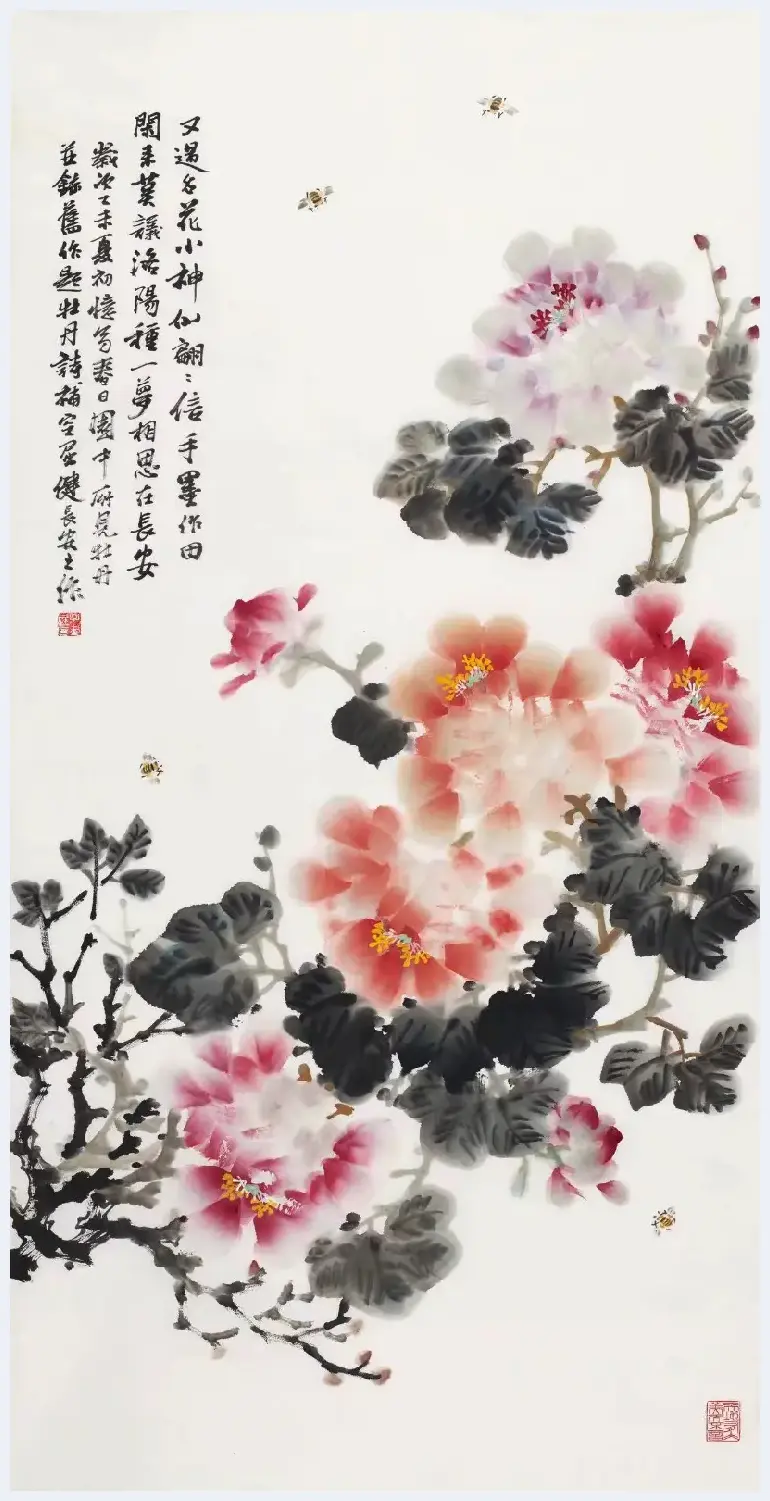 又遇名花小神仙翩〻信手墨作田
閑來莫議洛陽種一夢相思在長安
歲次乙未夏初憶寫春日園中所見牡丹
并錄舊作題牡丹詩補空屈健長安之作